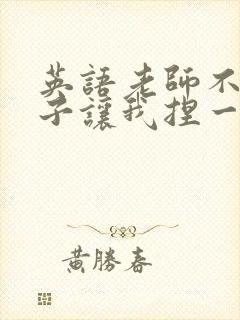 英語老師不
子讓我捏一
黃勝春